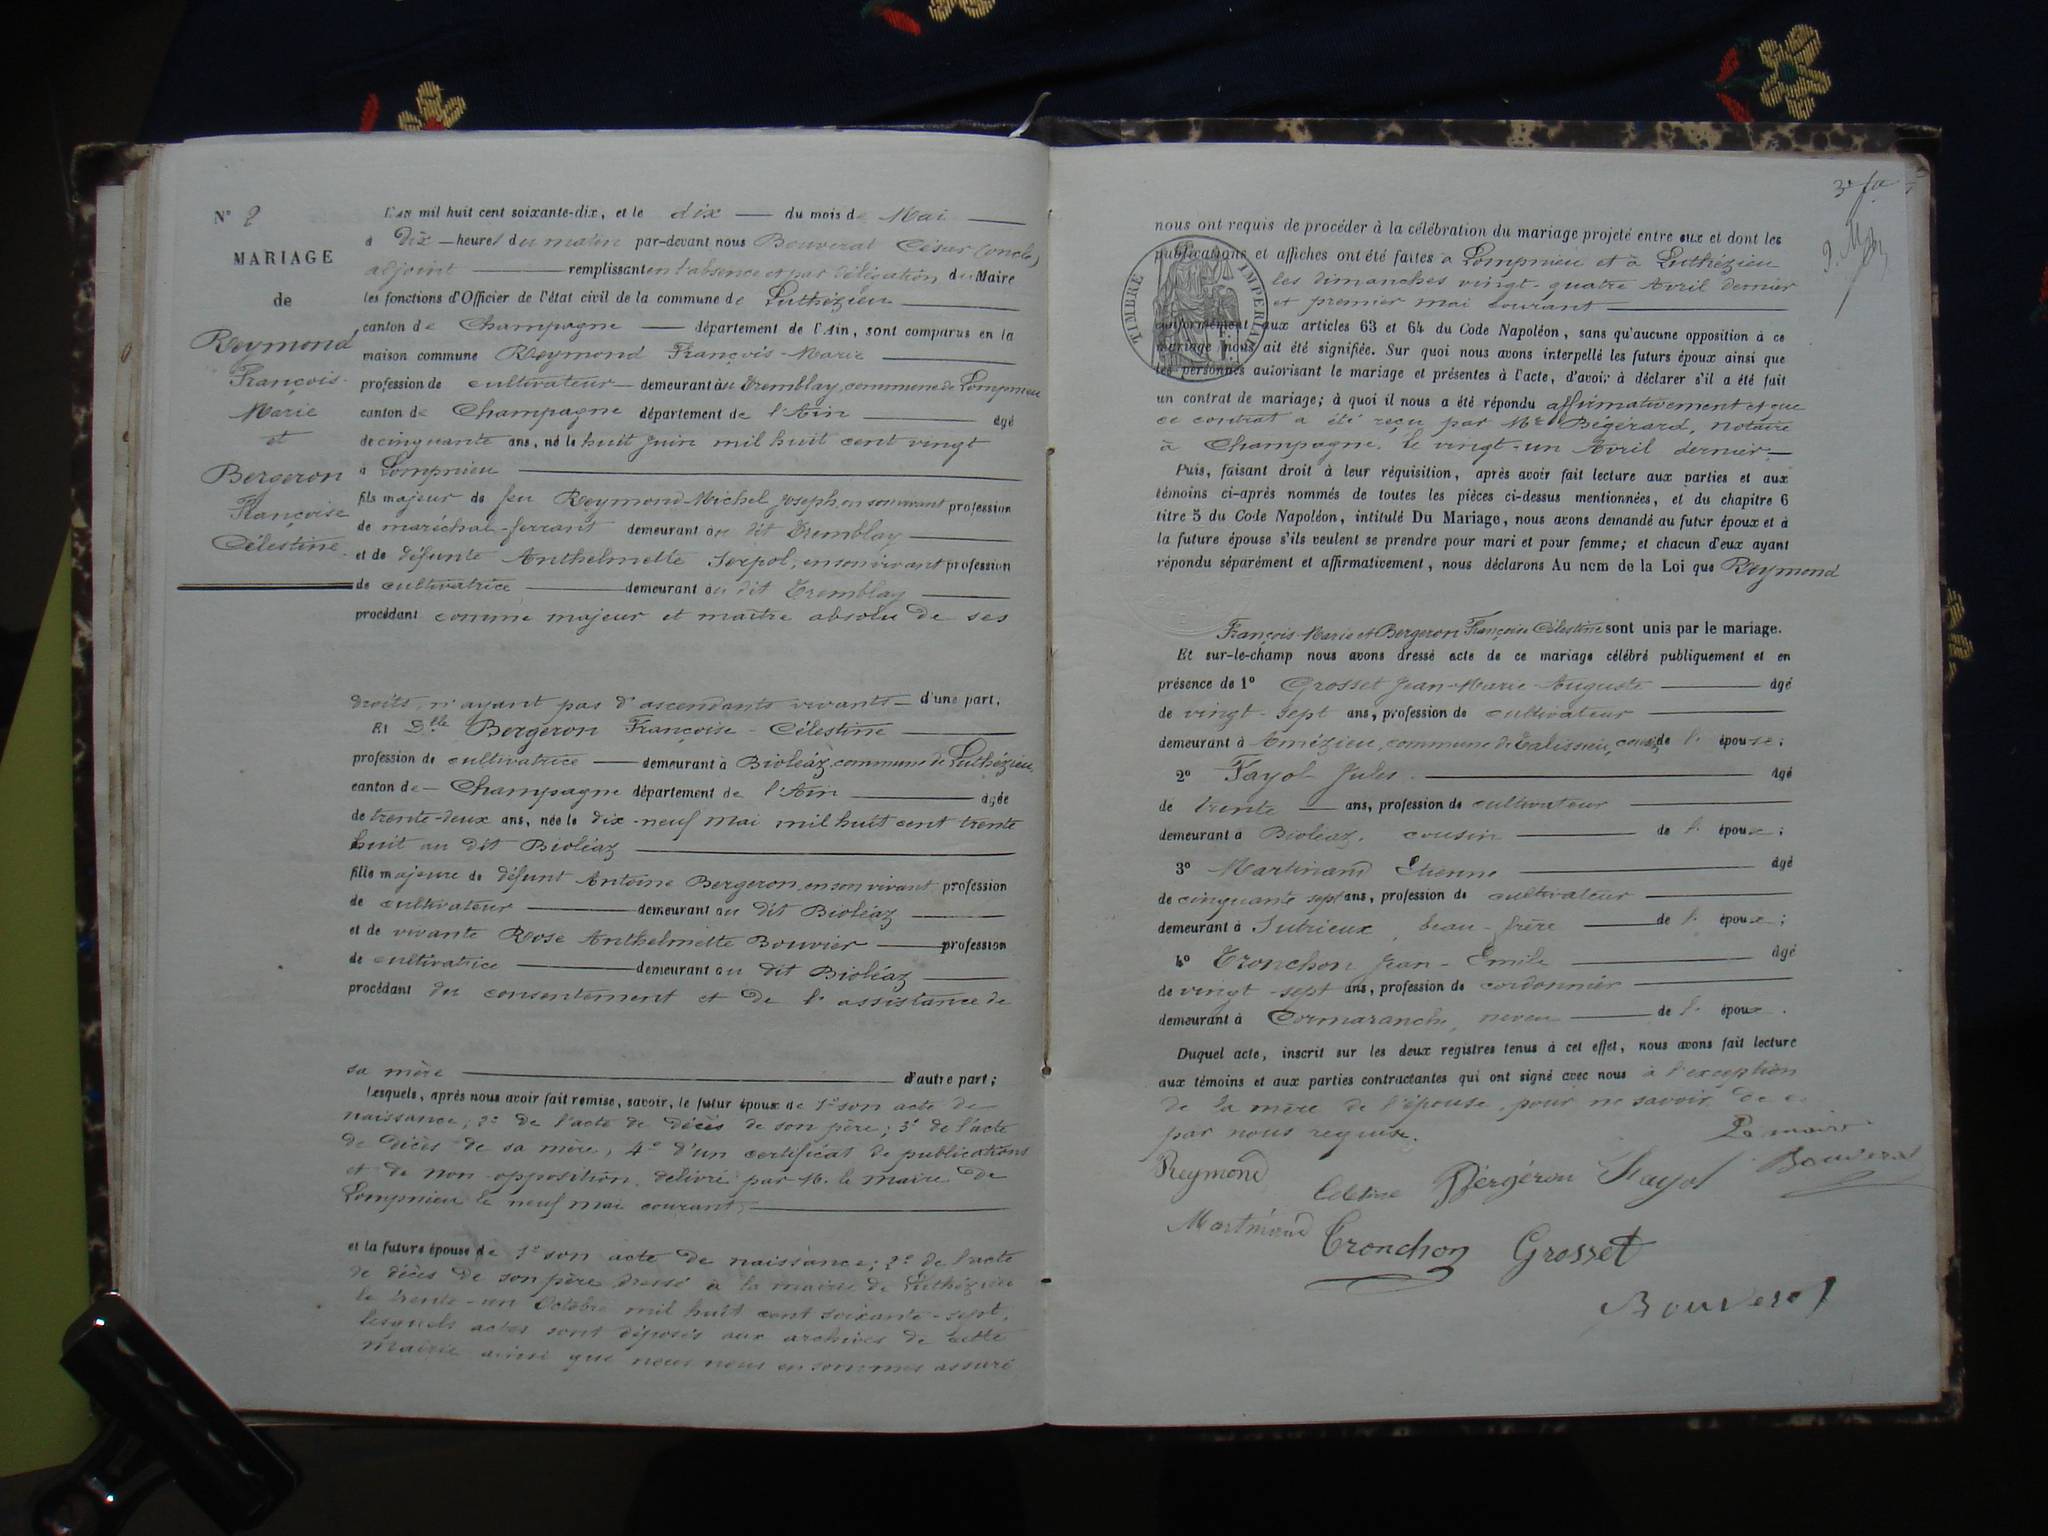 N° 2
MARIAGE
de
Reymond
François
Marie
et
Bergeron
Françoise
Célestine
L'an mil huit cent soixante-dix, et le dix du mois de Mai
à dix heures du matin par-devant nous Bouverat César (oncle)
adjoint remplissant en l'absence et par délégation du Maire
les fonctions d'Officier de l'état civil de la commune de Luthézieu
canton de Champagne département de l'Ain, sont comparus en la
maison commune Reymond François-Marie
profession de cultivateur demeurant au Tremblay, commune de Lompnieu
canton de Champagne département de l'Ain âgé
de cinquante ans, né le huit Juin mil huit cent vingt
à Lompnieu
fils majeur de feu Reymond Michel Joseph, en son vivant profession
de maréchal-ferrant demeurant au dit Tremblay
et de défunte Anthelmette Serpol, en son vivant profession
de cultivatrice demeurant au dit Tremblay
procédant comme majeur et maître absolu de ses
droits, n'ayant pas d'ascendants vivants d'une part.
Et Dlle Bergeron Françoise-Célestine
profession de cultivatrice demeurant à Bioléaz, commune de Luthézieu
canton de Champagne département de l'Ain âgée
de trente-deux ans, née le dix-neuf Mai mil huit cent trente
huit au dit Bioléaz
fille majeure de défunt Antoine Bergeron, en son vivant profession
de cultivateur demeurant au dit Bioléaz
et de vivante Rose Anthelmette Bouvier profession
de cultivatrice demeurant au dit Bioléaz
procédant du consentement et de l'assistance de
sa mère d'autre part;
Lesquels, après nous avoir fait remise, savoir, le futur époux de 1° son acte de
naissance; 2° de l'acte de décès de son père; 3° de l'acte
de décès de sa mère; 4° d'un certificat de publications
et de non opposition délivré par M. le maire de
Lompnieu le neuf mai courant,
et la future épouse de 1° son acte de naissance; 2° de l'acte
de décès de son père dressé à la mairie de Luthézieu
le trente-un Octobre mil huit cent soixante-sept,
lesquels actes sont déposés aux archives de cette
mairie ainsi que nous nous en sommes assuré
nous ont requis de procéder à la célébration du mariage projeté entre eux et dont les
publications et affiches ont été faites à Lompnieu et à Luthézieu
les dimanches vingt-quatre Avril dernier
et premier mai courant
TIMBRE IMPERIAL
conformément aux articles 63 et 64 du Code Napoléon, sans qu'aucune opposition à ce
mariage nous ait été signifiée. Sur quoi nous avons interpellé les futurs époux ainsi que
les personnes autorisant le mariage et présentes à l'acte, d'avoir à déclarer s'il a été fait
un contrat de mariage; à quoi il nous a été répondu affirmativement et que
ce contrat a été reçu par Me Bégérard, notaire
à Champagne, le vingt-un Avril dernier
Puis, faisant droit à leur réquisition, après avoir fait lecture aux parties et aux
témoins ci-après nommés de toutes les pièces ci-dessus mentionnées, et du chapitre 6
titre 5 du Code Napoléon, intitulé Du Mariage, nous avons demandé au futur époux et à
la future épouse s'ils veulent se prendre pour mari et pour femme; et chacun d'eux ayant
répondu séparément et affirmativement, nous déclarons Au nom de la Loi que Reymond
François-Marie et Bergeron Françoise Célestine sont unis par le mariage.
Et sur-le-champ nous avons dressé acte de ce mariage célébré publiquement et en
présence de 1° Grosset Jean-Marie-Auguste âgé
de vingt-sept ans, profession de cultivateur
demeurant à Amézieu, commune de Talissieu, cousin de l'épouse;
2° Fayol Jules âgé
de trente ans, profession de cultivateur
demeurant à Bioléaz, cousin de l'épouse;
3° Martinand Etienne âgé
de cinquante sept ans, profession de cultivateur
demeurant à Sutrieux, beau-frère de l'époux;
4° Tronchon Jean-Emile âgé
de vingt-sept ans, profession de cordonnier
demeurant à Cormaranche, neveu de l'époux.
Duquel acte, inscrit sur les deux registres tenus à cet effet, nous avons fait lecture
aux témoins et aux parties contractantes qui ont signé avec nous à l'exception
de la mère de l'épouse, pour ne savoir de ce
par nous requise.
Le maire
Reymond Celestine Bergéron Fayol Bouverat
Martinand Tronchon Grosset
Bouverat